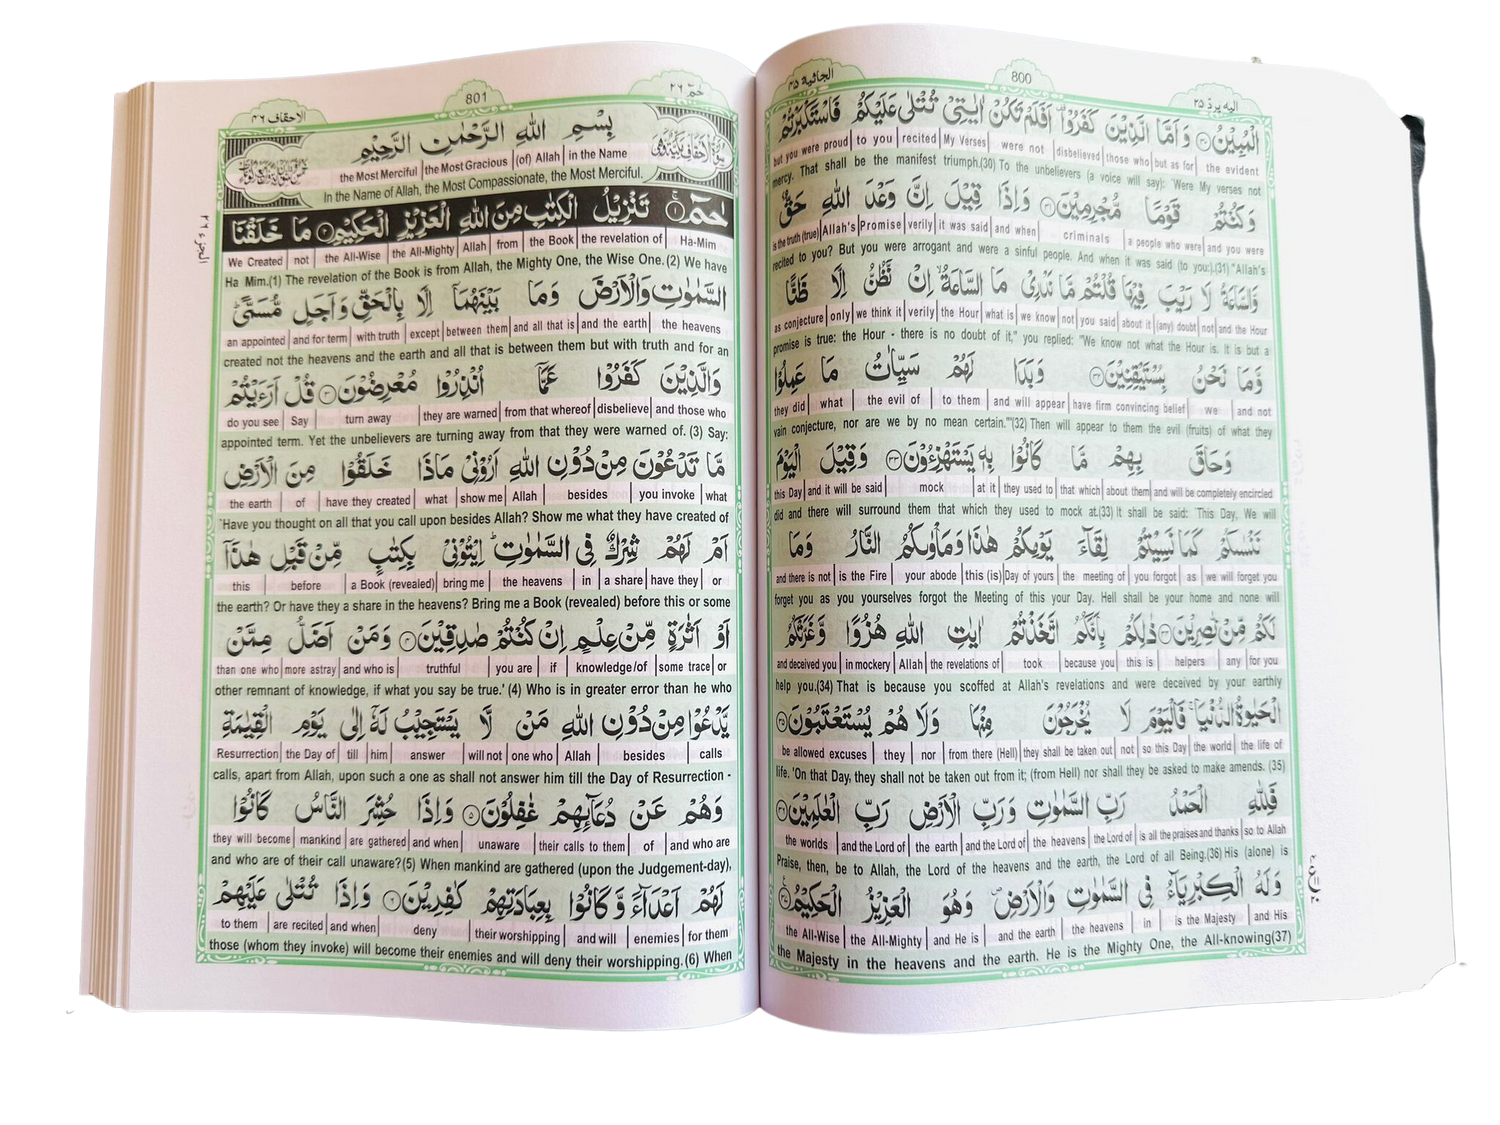 الجاثية ٤٥
800
اليه يرد ٢٥
الْمُبِيْنُ ﴿٣٠﴾ وَاَمَّا الَّذِيْنَ كَفَرُوْا اَفَلَمْ تَكُنْ اٰيٰتِيْ تُتْلٰى عَلَيْكُمْ فَاسْتَكْبَرْتُمْ
but you were proud | to you | recited | My Verses | were not | disbelieved | those who | but as for | the evident
mercy. That shall be the manifest triumph.(30) To the unbelievers (a voice will say): 'Were My verses not
وَكُنْتُمْ قَوْمًا مُّجْرِمِيْنَ ﴿٣١﴾ وَاِذَا قِيْلَ اِنَّ وَعْدَ اللّٰهِ حَقٌّ
is the truth (true) | Allah's | Promise | verily | it was said | and when | criminals | a people who were | and you were
recited to you? But you were arrogant and were a sinful people. And when it was said (to you:).(31) "Allah's
وَّالسَّاعَةُ لَا رَيْبَ فِيْهَا قُلْتُمْ مَّا نَدْرِيْ مَا السَّاعَةُ اِنْ نَّظُنُّ اِلَّا ظَنًّا
as conjecture | only | we think it | verily | the Hour | what is | we know | not | you said | about it | (any) doubt | not | and the Hour
promise is true: the Hour - there is no doubt of it," you replied: "We know not what the Hour is. It is but a
وَّمَا نَحْنُ بِمُسْتَيْقِنِيْنَ ﴿٣٢﴾ وَبَدَا لَهُمْ سَيِّاٰتُ مَا عَمِلُوْا
they did | what | the evil of | to them | and will appear | have firm convincing belief | we | and not
vain conjecture, nor are we by no mean certain."'(32) Then will appear to them the evil (fruits) of what they
وَحَاقَ بِهِمْ مَّا كَانُوْا بِهٖ يَسْتَهْزِءُوْنَ ﴿٣٣﴾ وَقِيْلَ الْيَوْمَ
this Day | and it will be said | mock | at it | they used to | that which | about them | and will be completely encircled
did and there will surround them that which they used to mock at.(33) It shall be said: 'This Day, We will
نَنْسٰىكُمْ كَمَا نَسِيْتُمْ لِقَآءَ يَوْمِكُمْ هٰذَا وَمَاْوٰىكُمُ النَّارُ وَمَا
and there is not | is the Fire | your abode | this (is) | Day of yours | the meeting of | you forgot | as | we will forget you
forget you as you yourselves forgot the Meeting of this your Day. Hell shall be your home and none will
لَكُمْ مِّنْ نّٰصِرِيْنَ ﴿٣٤﴾ ذٰلِكُمْ بِاَنَّكُمُ اتَّخَذْتُمْ اٰيٰتِ اللّٰهِ هُزُوًا وَّغَرَّتْكُمُ
and deceived you | in mockery | Allah | the revelations of | took | because you | this is | helpers | any | for you
help you.(34) That is because you scoffed at Allah's revelations and were deceived by your earthly
الْحَيٰوةُ الدُّنْيَا فَالْيَوْمَ لَا يُخْرَجُوْنَ مِنْهَا وَلَا هُمْ يُسْتَعْتَبُوْنَ ﴿٣٥﴾
be allowed excuses | they | nor | from there (Hell) | they shall be taken out | not | so this Day | the world | the life of
life. 'On that Day, they shall not be taken out from it; (from Hell) nor shall they be asked to make amends. (35)
فَلِلّٰهِ الْحَمْدُ رَبِّ السَّمٰوٰتِ وَرَبِّ الْاَرْضِ رَبِّ الْعٰلَمِيْنَ ﴿٣٦﴾
the worlds | and the Lord of | the earth | and the Lord of | the heavens | the Lord of | is all the praises and thanks | so to Allah
Praise, then, be to Allah, the Lord of the heavens and the earth, the Lord of all Being.(36) His (alone) is
وَلَهُ الْكِبْرِيَآءُ فِي السَّمٰوٰتِ وَالْاَرْضِ وَهُوَ الْعَزِيْزُ الْحَكِيْمُ ﴿٣٧﴾
the All-Wise | the All-Mighty | and He is | and the earth | the heavens | in | is the Majesty | and His
the Majesty in the heavens and the earth. He is the Mighty One, the All-knowing(37)
حٰمٓ ٢٦
801
الاحقاف ٤٦
بِسْمِ اللّٰهِ الرَّحْمٰنِ الرَّحِيْمِ
the Most Merciful | the Most Gracious | (of) Allah | in the Name
In the Name of Allah, the Most Compassionate, the Most Merciful.
حٰمٓ ﴿١﴾ تَنْزِيْلُ الْكِتٰبِ مِنَ اللّٰهِ الْعَزِيْزِ الْحَكِيْمِ ﴿٢﴾ مَا خَلَقْنَا
We Created | not | the All-Wise | the All-Mighty | Allah | from | the Book | the revelation of | Ha-Mim
Ha Mim.(1) The revelation of the Book is from Allah, the Mighty One, the Wise One.(2) We have
السَّمٰوٰتِ وَالْاَرْضَ وَمَا بَيْنَهُمَآ اِلَّا بِالْحَقِّ وَاَجَلٍ مُّسَمًّى
an appointed | and for term | with truth | except | between them | and all that is | and the earth | the heavens
created not the heavens and the earth and all that is between them but with truth and for an
وَالَّذِيْنَ كَفَرُوْا عَمَّآ اُنْذِرُوْا مُعْرِضُوْنَ ﴿٣﴾ قُلْ اَرَءَيْتُمْ
do you see | Say | turn away | they are warned | from that whereof | disbelieve | and those who
appointed term. Yet the unbelievers are turning away from that they were warned of. (3) Say:
مَّا تَدْعُوْنَ مِنْ دُوْنِ اللّٰهِ اَرُوْنِيْ مَاذَا خَلَقُوْا مِنَ الْاَرْضِ
the earth | of | have they created | what | show me | Allah | besides | you invoke | what
'Have you thought on all that you call upon besides Allah? Show me what they have created of
اَمْ لَهُمْ شِرْكٌ فِي السَّمٰوٰتِ اِيْتُوْنِيْ بِكِتٰبٍ مِّنْ قَبْلِ هٰذَآ
this | before | a Book (revealed) | bring me | the heavens | in | a share | have they | or
the earth? Or have they a share in the heavens? Bring me a Book (revealed) before this or some
اَوْ اَثٰرَةٍ مِّنْ عِلْمٍ اِنْ كُنْتُمْ صٰدِقِيْنَ ﴿٤﴾ وَمَنْ اَضَلُّ مِمَّنْ
than one who | more astray | and who is | truthful | you are | if | knowledge/of | some trace | or
other remnant of knowledge, if what you say be true.' (4) Who is in greater error than he who
يَّدْعُوْا مِنْ دُوْنِ اللّٰهِ مَنْ لَّا يَسْتَجِيْبُ لَهٗٓ اِلٰى يَوْمِ الْقِيٰمَةِ
Resurrection | the Day of | till | him | answer | will not | one who | Allah | besides | calls
calls, apart from Allah, upon such a one as shall not answer him till the Day of Resurrection -
وَهُمْ عَنْ دُعَآئِهِمْ غٰفِلُوْنَ ﴿٥﴾ وَاِذَا حُشِرَ النَّاسُ كَانُوْا
they will become | mankind | are gathered | and when | unaware | their calls to them | of | and who are
and who are of their call unaware?(5) When mankind are gathered (upon the Judgement-day),
لَهُمْ اَعْدَآءً وَّكَانُوْا بِعِبَادَتِهِمْ كٰفِرِيْنَ ﴿٦﴾ وَاِذَا تُتْلٰى عَلَيْهِمْ
to them | are recited | and when | deny | their worshipping | and will | enemies | for them
those (whom they invoke) will become their enemies and will deny their worshipping.(6) When